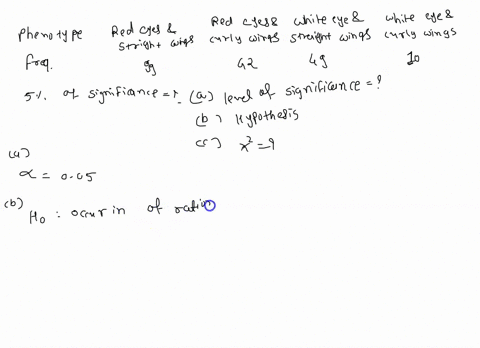 phenotype Red eyes & Red eyes & white eye & white eye &
stright wings curly wings streight wings curly wings
freq. 99 42 49 10
5% of significance = ? (a) level of significance = ?
(b) Hypothesis
(c) x² = ?
(a)
α = 0.05
(b)
H₀ : occur in of ratio